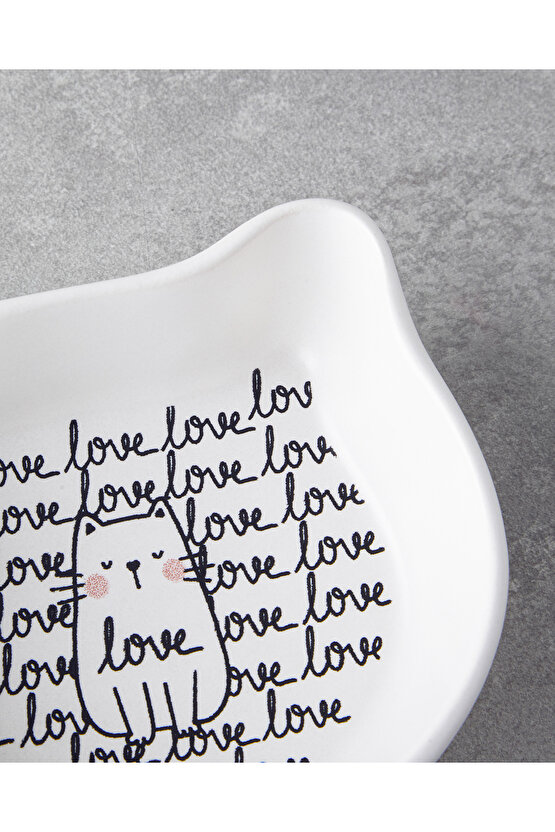 love love love lov
love love love love
love love love
love love love
love love love
love love love love
love love love
lov love love
love love love